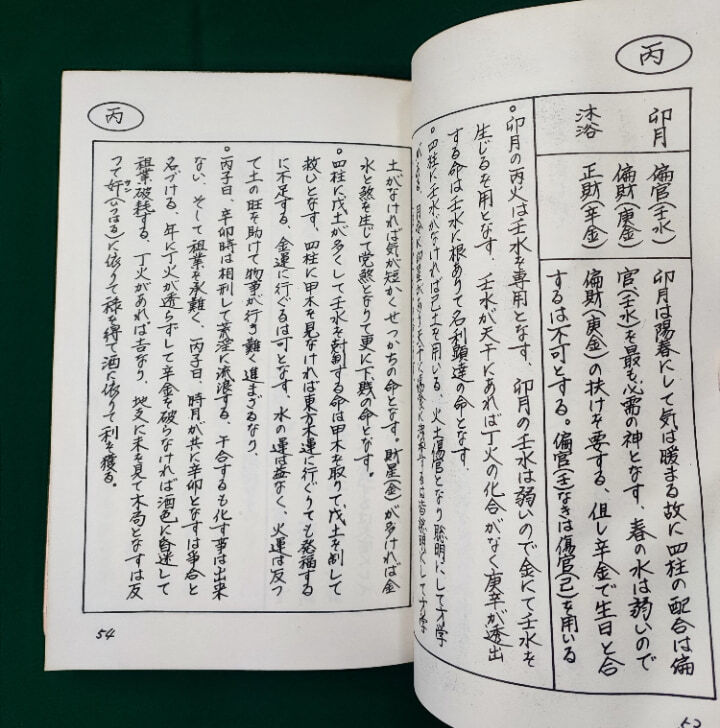 丙
卯月
沐浴
偏官(壬水)
偏財(庚金)
正財(辛金)
卯月は陽春にして気は暖まる故に四柱の配合は偏
官(壬水)を最も必需の神となす、春の水は弱いので
偏財(庚金)の扶けを要する、但し辛金で生日と合
するは不可とする。偏官(壬)なきは傷官(己)を用いる
。卯月の丙火は壬水を専用となす、卯月の壬水は弱いので金にて壬水を
生じるを用となす、壬水が天干にあれば丁火の化合がなく庚辛が透出
する命は壬水に根ありて名利顕達の命となす、
。四柱に壬水がなければ己土を用いる、火土傷官となり聡明にして才学
丙
土がなければ気が短かくせっかちの命となす。財星(金)が多ければ金
水と煞を生じて党煞となりて更に下賎の命となす。
。四柱に戊土が多くして壬水を尅制する命は甲木を取りて戊土を制して
救いとなす、四柱に甲木を見なければ東方木運に行ぐりても発福する
に不足する、金運に行ぐるは可となす、水の運は益なく、火運は反つ
て土の旺を助けて物事が行き難く進まざるなり、
。丙子日、辛卯時は相刑して荒淫に流浪する、干合するも化す事は出来
ない、そして祖業を承難く、丙子日、時月が共に辛卯となすは争合と
名づける、年に丁火が透らずして辛金を破らなければ酒色に自迷して
祖業破耗する、丁火があれば吉なり、地支に未を見て木局となすは反
つて奸(いつはる)に依りて禄を得て酒に依りて利を獲る。
カン
54
53